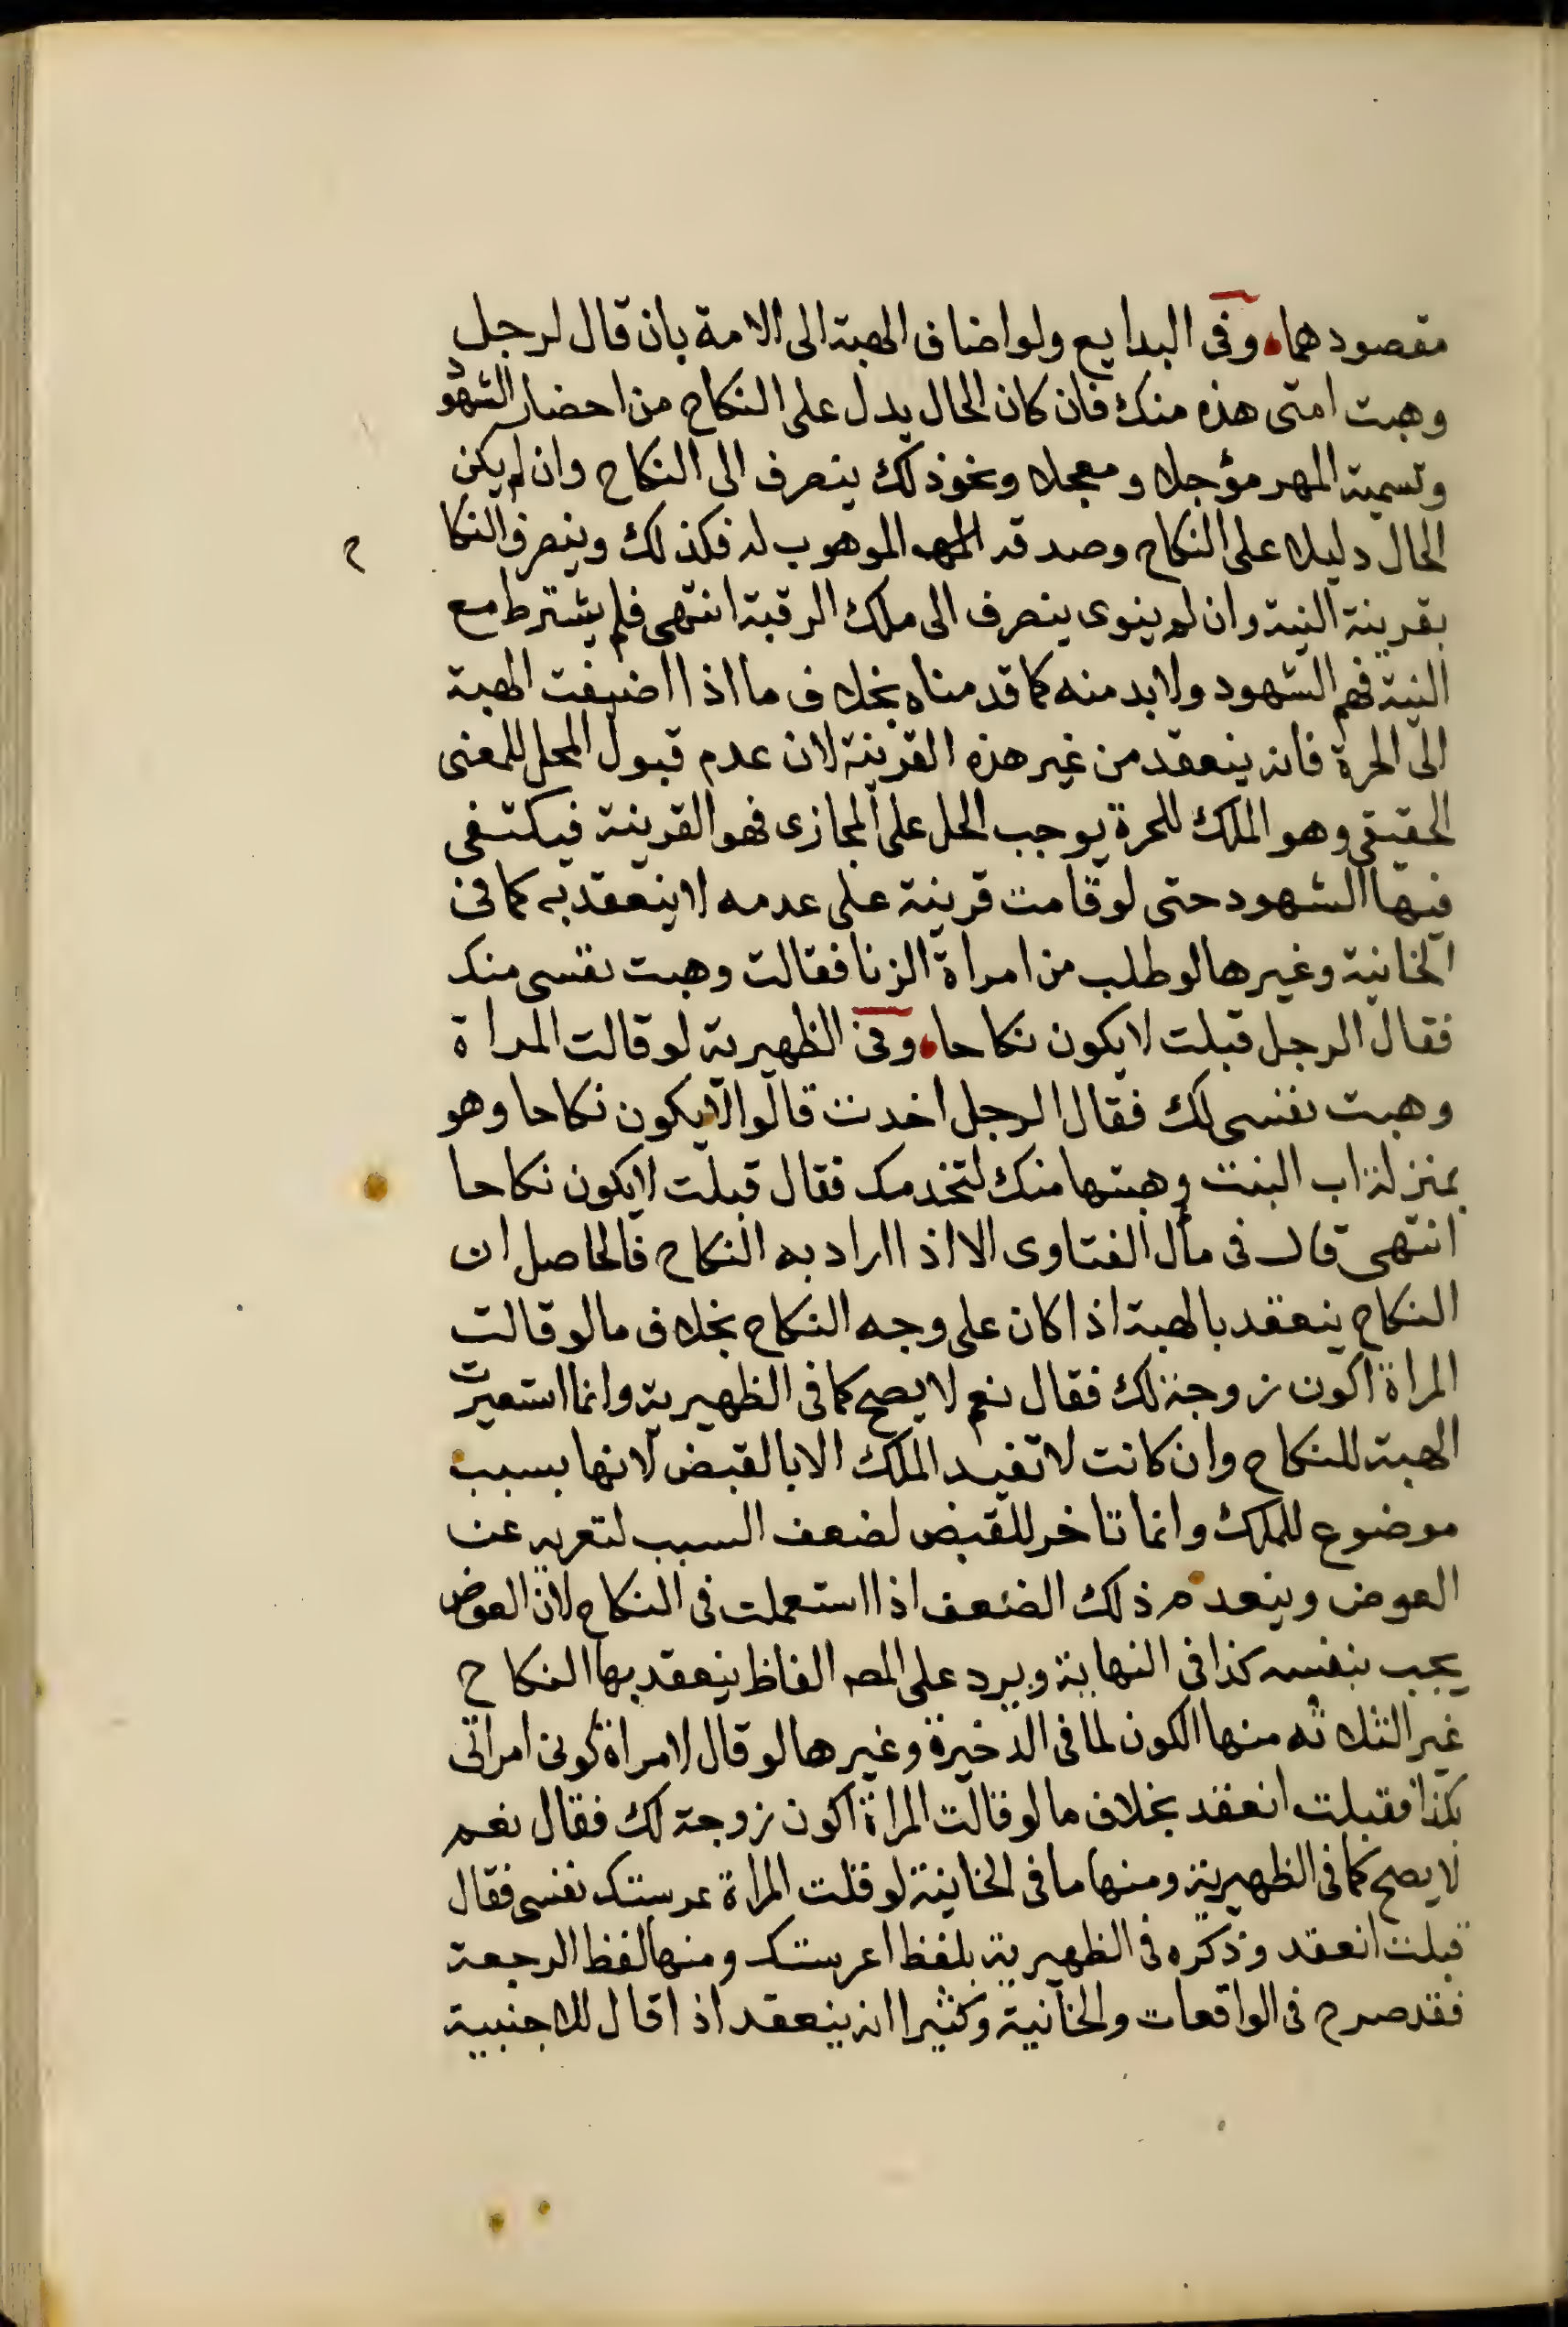 مقصودهما وفى البدايع ولو اضاف الهبة الى الامة بان قال لرجل
وهبت امتى هذه منك فان كان الحال يدل على النكاح من احضار الشهود
وتسمية المهر مؤجلا ومعجلا ونحو ذلك ينصرف الى النكاح وان لم يكن
الحال دليلا على النكاح وصدقه الموهوب له فكذلك وينصرف النكاح
بقرينة النية وان لم ينوى ينصرف الى ملك الرقبة انتهى فلم يشترط مع
النية فهم الشهود ولا بد منه كما قدمناه بخلاف ما اذا اضيفت الهبة
الى الحرة فانه ينعقد من غير هذه القرينة لان عدم قبول المحل للمعنى
الحقيقى وهو الملك للحرة يوجب الحل على المجازى فهو القرينة فيكتفى
فيها الشهود حتى لو قامت قرينة على عدمه لا ينعقد به كما فى
الخانية وغيرها لو طلب من امراة الزنا فقالت وهبت نفسى منك
فقال الرجل قبلت لا يكون نكاحا وفى الظهيرية لو قالت المراة
وهبت نفسى لك فقال الرجل اخدت قالوا لا يكون نكاحا وهو
بمنزلة اب البنت وهبتها منك لتخدمك فقال قبلت لا يكون نكاحا
انتهى قال فى مآل الفتاوى الا اذا اراد به النكاح فالحاصل ان
النكاح ينعقد بالهبة اذا كان على وجه النكاح بخلاف ما لو قالت
المراة اكون زوجة لك فقال نعم لا يصح كما فى الظهيرية وانما استعيرت
الهبة للنكاح وان كانت لا تفيد الملك الا بالقبض لانها بسبب
موضوع للملك وانما تاخر للقبض لضعف السبب لتعريه عن
العوض وينعدم ذلك الضعف اذا استعملت فى النكاح لان العوض
يجب بنفسه كذا فى النهاية ويرد على المصـ الفاظ ينعقد بها النكاح
غير الثلاثه منها الكون لما فى الذخيرة وغيرها لو قال لامراة كونى امراتى
بكذا فقبلت انعقد بخلاف ما لو قالت المراة اكون زوجة لك فقال نعم
لا يصح كما فى الظهيرية ومنها ما فى الخانية لو قلت المراة عرستك نفسى فقال
قبلت انعقد وذكره فى الظهيرية بلفظ اعرستك ومنها لفظ الرجعة
فقد صرح فى الواقعات والخانية وكثيرا انه ينعقد اذا قال للاجنبية